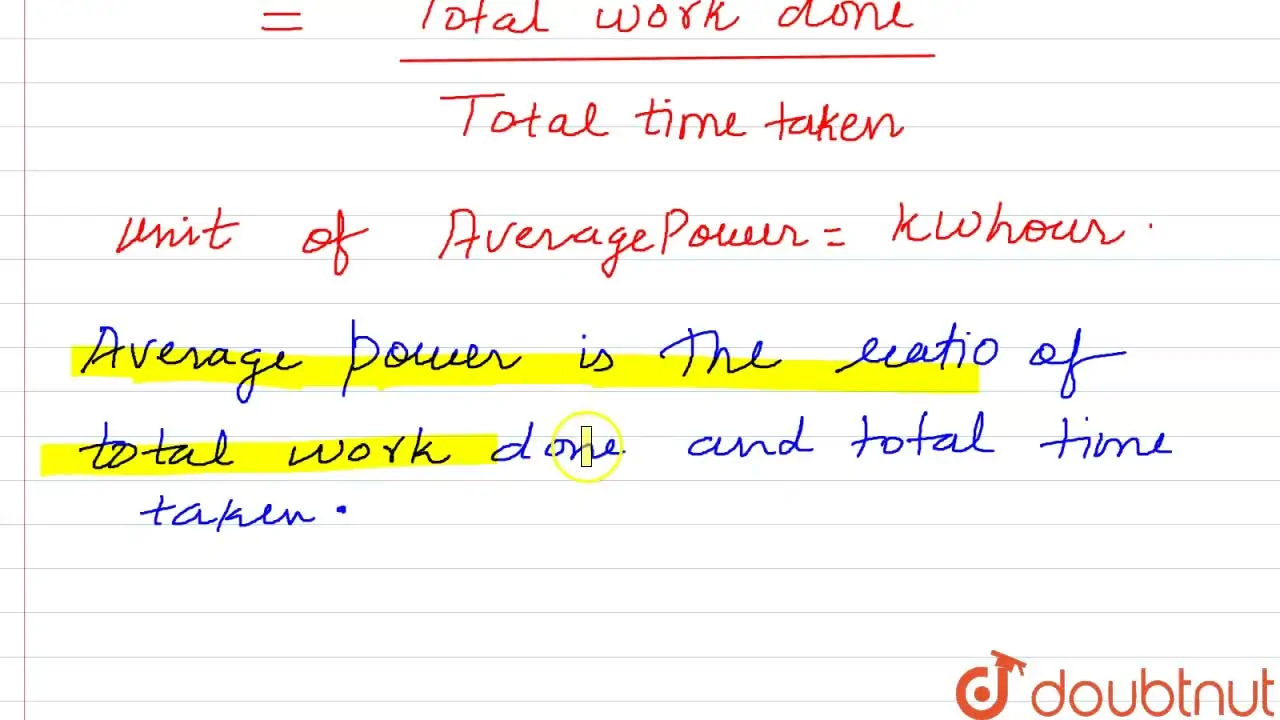 = Total work done
Total time taken
unit of Average Power = kWhour.
Average power is the ratio of
total work done and total time
taken.
doubtnut